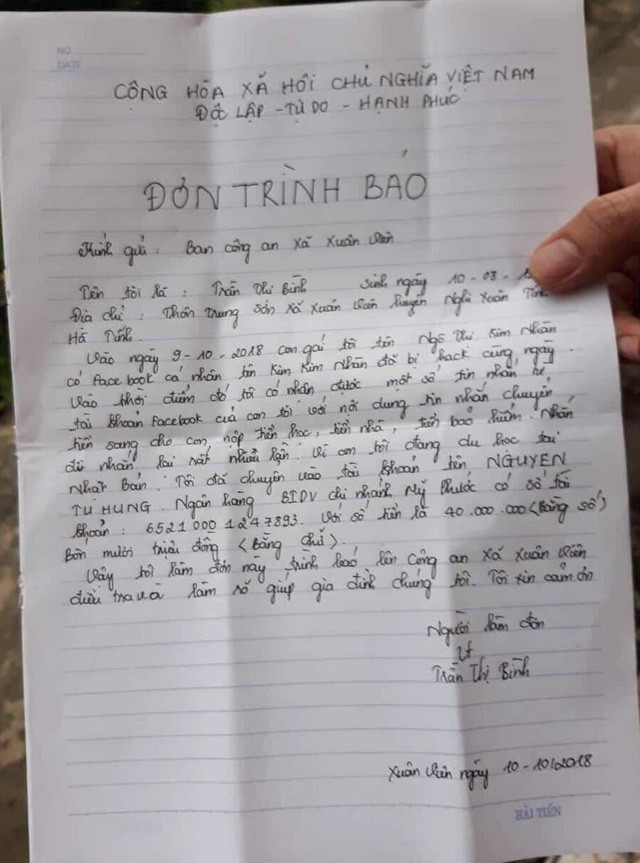 NO
DATE
CỘNG HÒA XÃ HỘI CHỦ NGHĨA VIỆT NAM
ĐỘC LẬP - TỰ DO - HẠNH PHÚC
ĐƠN TRÌNH BÁO
Kính gửi : Ban công an xã Xuân Viên
Tên tôi là : Trần Thị Bình sinh ngày 10-08-1
Địa chỉ : Thôn Trung Sơn Xã Xuân Viên huyện Nghi Xuân Tỉnh
Hà Tĩnh.
Vào ngày 9-10-2018 con gái tôi tên Ngô Thị Kim Nhàn
có Facebook cá nhân tên Kim Kim Nhàn đã bị hack cùng ngày.
Vào thời điểm đó tôi có nhận được một số tin nhắn từ
tài khoản Facebook của con tôi với nội dung tin nhắn chuyển
tiền sang cho con, nộp tiền học, tiền nhà, tiền bảo hiểm. Nhắn
đi nhắn lại rất nhiều lần. Vì con tôi đang du học tại
Nhật Bản. Tôi đã chuyển vào tài khoản tên NGUYEN
TU HUNG. Ngân hàng BIDV chi nhánh Mỹ Phước có số tài
khoản : 6521000 1247893. Với số tiền là 40.000.000 (Bằng số)
Bốn mươi triệu đồng (Bằng chữ).
Vậy tôi làm đơn này trình báo lên Công an Xã Xuân Viên
điều tra và làm rõ giúp gia đình chúng tôi. Tôi xin cảm ơn
Người làm đơn
Trần Thị Bình
Xuân Viên ngày 10-10/2018
HẢI TIẾN